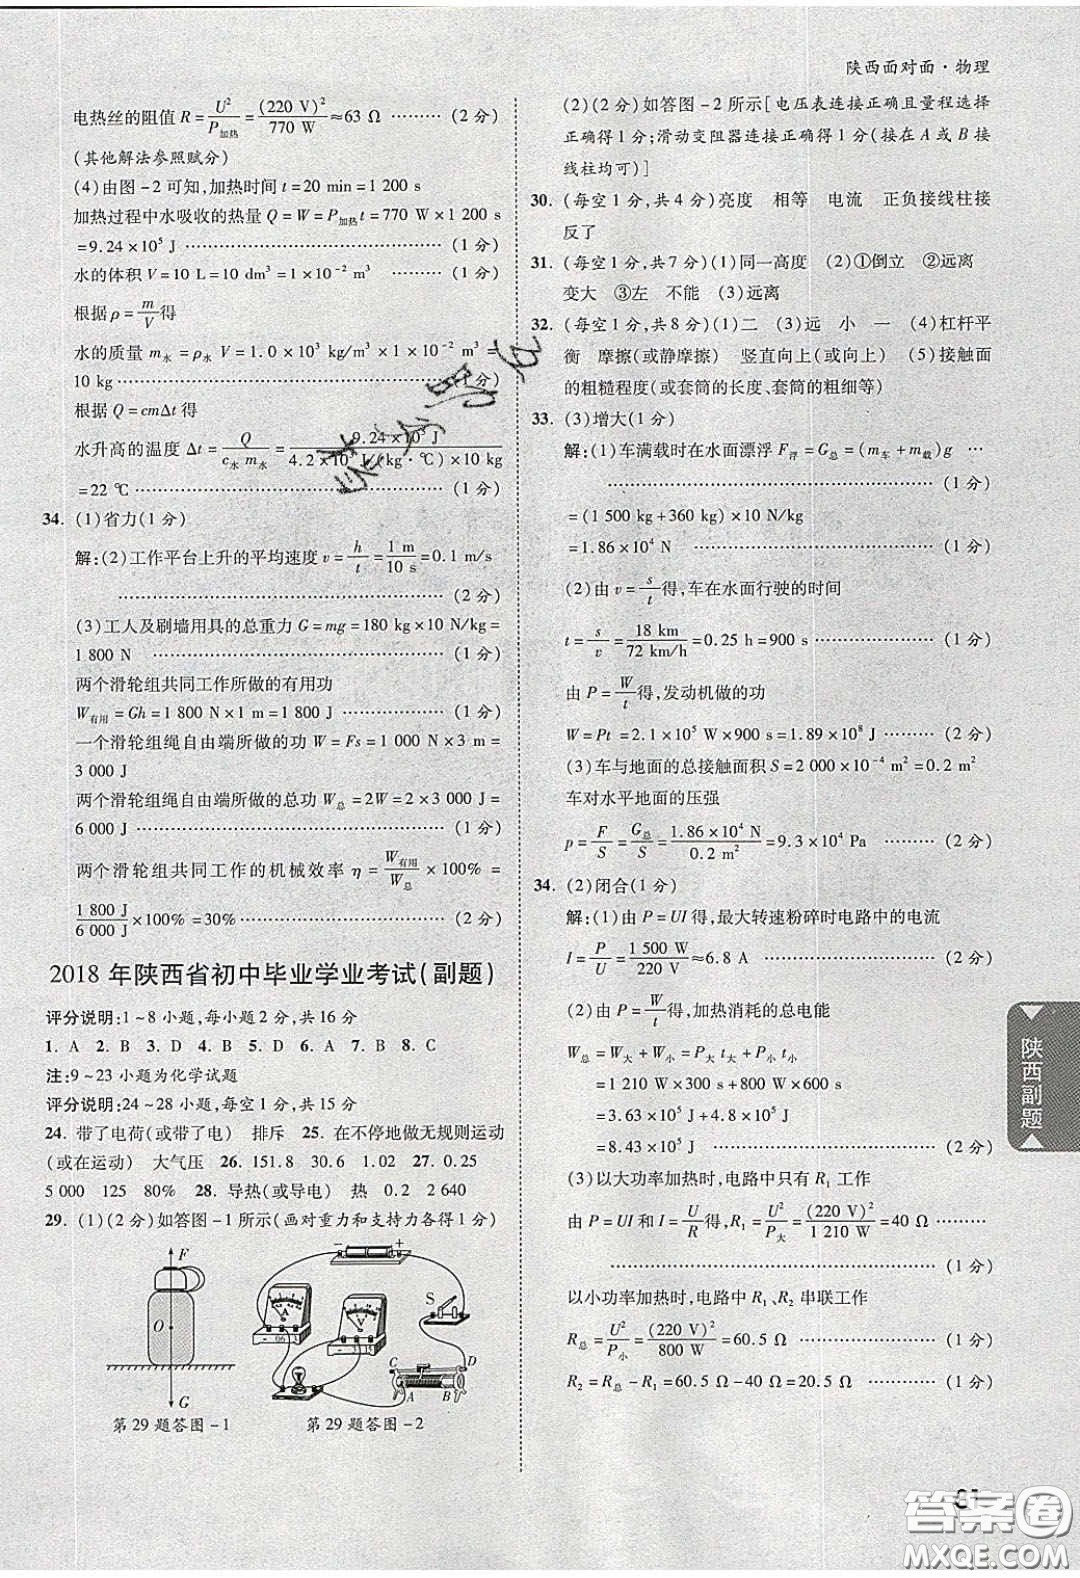 陕西面对面·物理
电热丝的阻值 R = U²/P加热 = (220 V)²/770 W ≈ 63 Ω ……… (2 分)
(其他解法参照赋分)
(4)由图-2 可知,加热时间 t = 20 min = 1 200 s
加热过程中水吸收的热量 Q = W = P加热 t = 770 W × 1 200 s
= 9.24 × 10⁵ J ……… (1 分)
水的体积 V = 10 L = 10 dm³ = 1 × 10⁻² m³ ……… (1 分)
根据 ρ = m/V 得
水的质量 m水 = ρ水 V = 1.0 × 10³ kg/m³ × 1 × 10⁻² m³ =
10 kg ……… (1 分)
根据 Q = cmΔt 得
水升高的温度 Δt = Q/(c水 m水) = 9.24 × 10⁵ J/(4.2 × 10³ J/(kg·℃) × 10 kg)
= 22 ℃ ……… (1 分)
34. (1)省力(1 分)
解:(2)工作平台上升的平均速度 v = h/t = 1 m/10 s = 0.1 m/s
……… (2 分)
(3)工人及刷墙用具的总重力 G = mg = 180 kg × 10 N/kg =
1 800 N ……… (1 分)
两个滑轮组共同工作所做的有用功
W有用 = Gh = 1 800 N × 1 m = 1 800 J ……… (1 分)
一个滑轮组绳自由端所做的功 W = Fs = 1 000 N × 3 m =
3 000 J
两个滑轮组绳自由端所做的总功 W总 = 2W = 2 × 3 000 J =
6 000 J ……… (1 分)
两个滑轮组共同工作的机械效率 η = W有用/W总 × 100% =
1 800 J/6 000 J × 100% = 30% ……… (2 分)
2018 年陕西省初中毕业学业考试(副题)
评分说明:1~8 小题,每小题 2 分,共 16 分
1. A 2. B 3. D 4. B 5. B 6. A 7. B 8. C
注:9~23 小题为化学试题
评分说明:24~28 小题,每空 1 分,共 15 分
24. 带了电荷(或带了电) 排斥 25. 在不停地做无规则运动
(或在运动) 大气压 26. 151.8 30.6 1.02 27. 0.25
5 000 125 80% 28. 导热(或导电) 热 0.2 2 640
29. (1)(2 分)如答图-1 所示(画对重力和支持力各得 1 分)
F
O
G
第 29 题答图-1
- +
A
V
S
C D
A B
第 29 题答图-2
(2)(2 分)如答图-2 所示[电压表连接正确且量程选择
正确得 1 分;滑动变阻器连接正确得 1 分(接在 A 或 B 接
线柱均可)]
30. (每空 1 分,共 4 分)亮度 相等 电流 正负接线柱接
反了
31. (每空 1 分,共 7 分)(1)同一高度 (2)①倒立 ②远离
变大 ③左 不能 (3)远离
32. (每空 1 分,共 8 分)(1)二 (3)远 小 一 (4)杠杆平
衡 摩擦(或静摩擦) 竖直向上(或向上) (5)接触面
的粗糙程度(或套筒的长度、套筒的粗细等)
33. (3)增大(1 分)
解:(1)车满载时在水面漂浮 F浮 = G总 = (m车 + m载)g …
……… (1 分)
= (1 500 kg + 360 kg) × 10 N/kg
= 1.86 × 10⁴ N ……… (1 分)
(2)由 v = s/t 得,车在水面行驶的时间
t = s/v = 18 km/72 km/h = 0.25 h = 900 s ……… (1 分)
由 P = W/t 得,发动机做的功
W = Pt = 2.1 × 10⁵ W × 900 s = 1.89 × 10⁸ J ……… (2 分)
(3)车与地面的总接触面积 S = 2 000 × 10⁻⁴ m² = 0.2 m²
车对水平地面的压强
p = F/S = G总/S = 1.86 × 10⁴ N/0.2 m² = 9.3 × 10⁴ Pa ……… (2 分)
34. (2)闭合(1 分)
解:(1)由 P = UI 得,最大转速粉碎时电路中的电流
I = P/U = 1 500 W/220 V ≈ 6.8 A ……… (1 分)
(2)由 P = W/t 得,加热消耗的总电能
W总 = W大 + W小 = P大 t大 + P小 t小
= 1 210 W × 300 s + 800 W × 600 s
= 3.63 × 10⁵ J + 4.8 × 10⁵ J
= 8.43 × 10⁵ J ……… (2 分)
(3)以大功率加热时,电路中只有 R₁ 工作
由 P = UI 和 I = U/R 得, R₁ = U²/P大 = (220 V)²/1 210 W = 40 Ω
……… (1 分)
以小功率加热时,电路中 R₁、R₂ 串联工作
R总 = U²/P小 = (220 V)²/800 W = 60.5 Ω ……… (1 分)
R₂ = R总 - R₁ = 60.5 Ω - 40 Ω = 20.5 Ω ……… (1 分)
陕西副题
答案圈
MXQE.COM